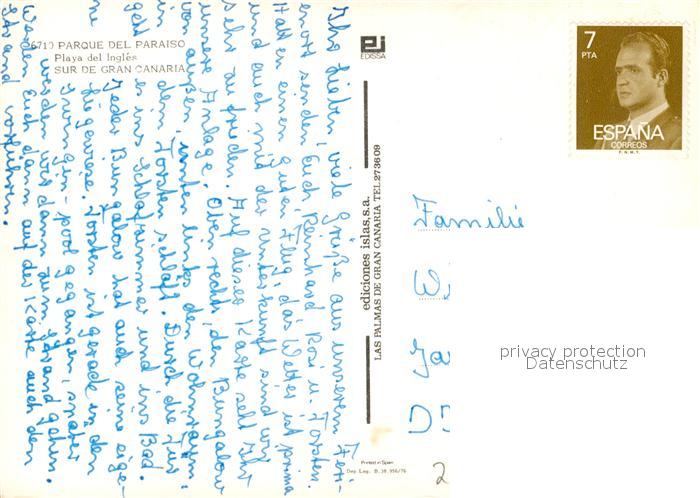 6710 PARQUE DEL PARAISO
Playa del Inglés
SUR DE GRAN CANARIA
EDISSA
7
PTA
ESPAÑA
CORREOS
F.N.M.T.
Ihr Lieben, viele Grüße aus unserem Feri-
enort senden Euch Reinhard Rosi u. Torsten.
Hatten einen guten Flug, das Wetter ist prima
und auch mit der Unterkunft sind wir
sehr zufrieden. Auf dieser Karte seht Ihr
unsere Anlage. Oben rechts, den Bungalow
von außen, unten links den Wohnraum
in dem Torsten schläft. Durch die Tür
geht es ins Schlafzimmer und ins Bad.
Jeder Bungalow hat auch seine eige-
ne Liegewiese. Torsten ist gerade in den
Swimmingpool gegangen, später
werden wir dann zum Strand gehen.
Werden Euch dann auf der Karte auch den
Strand vorführen.
ediciones islas, s.a.
LAS PALMAS DE GRAN CANARIA TEL. 273609
Familie
privacy protection
Datenschutz
Printed in Spain
Dep. Leg. B. 38.956/76
2